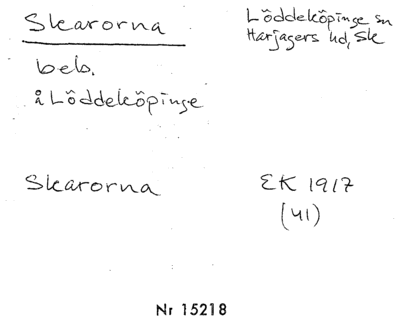 Skarorna
Löddeköpinge sn
Harjagers hd, Sk
beb.
å Löddeköpinge
Skarorna
EK 1917
(41)
Nr 15218